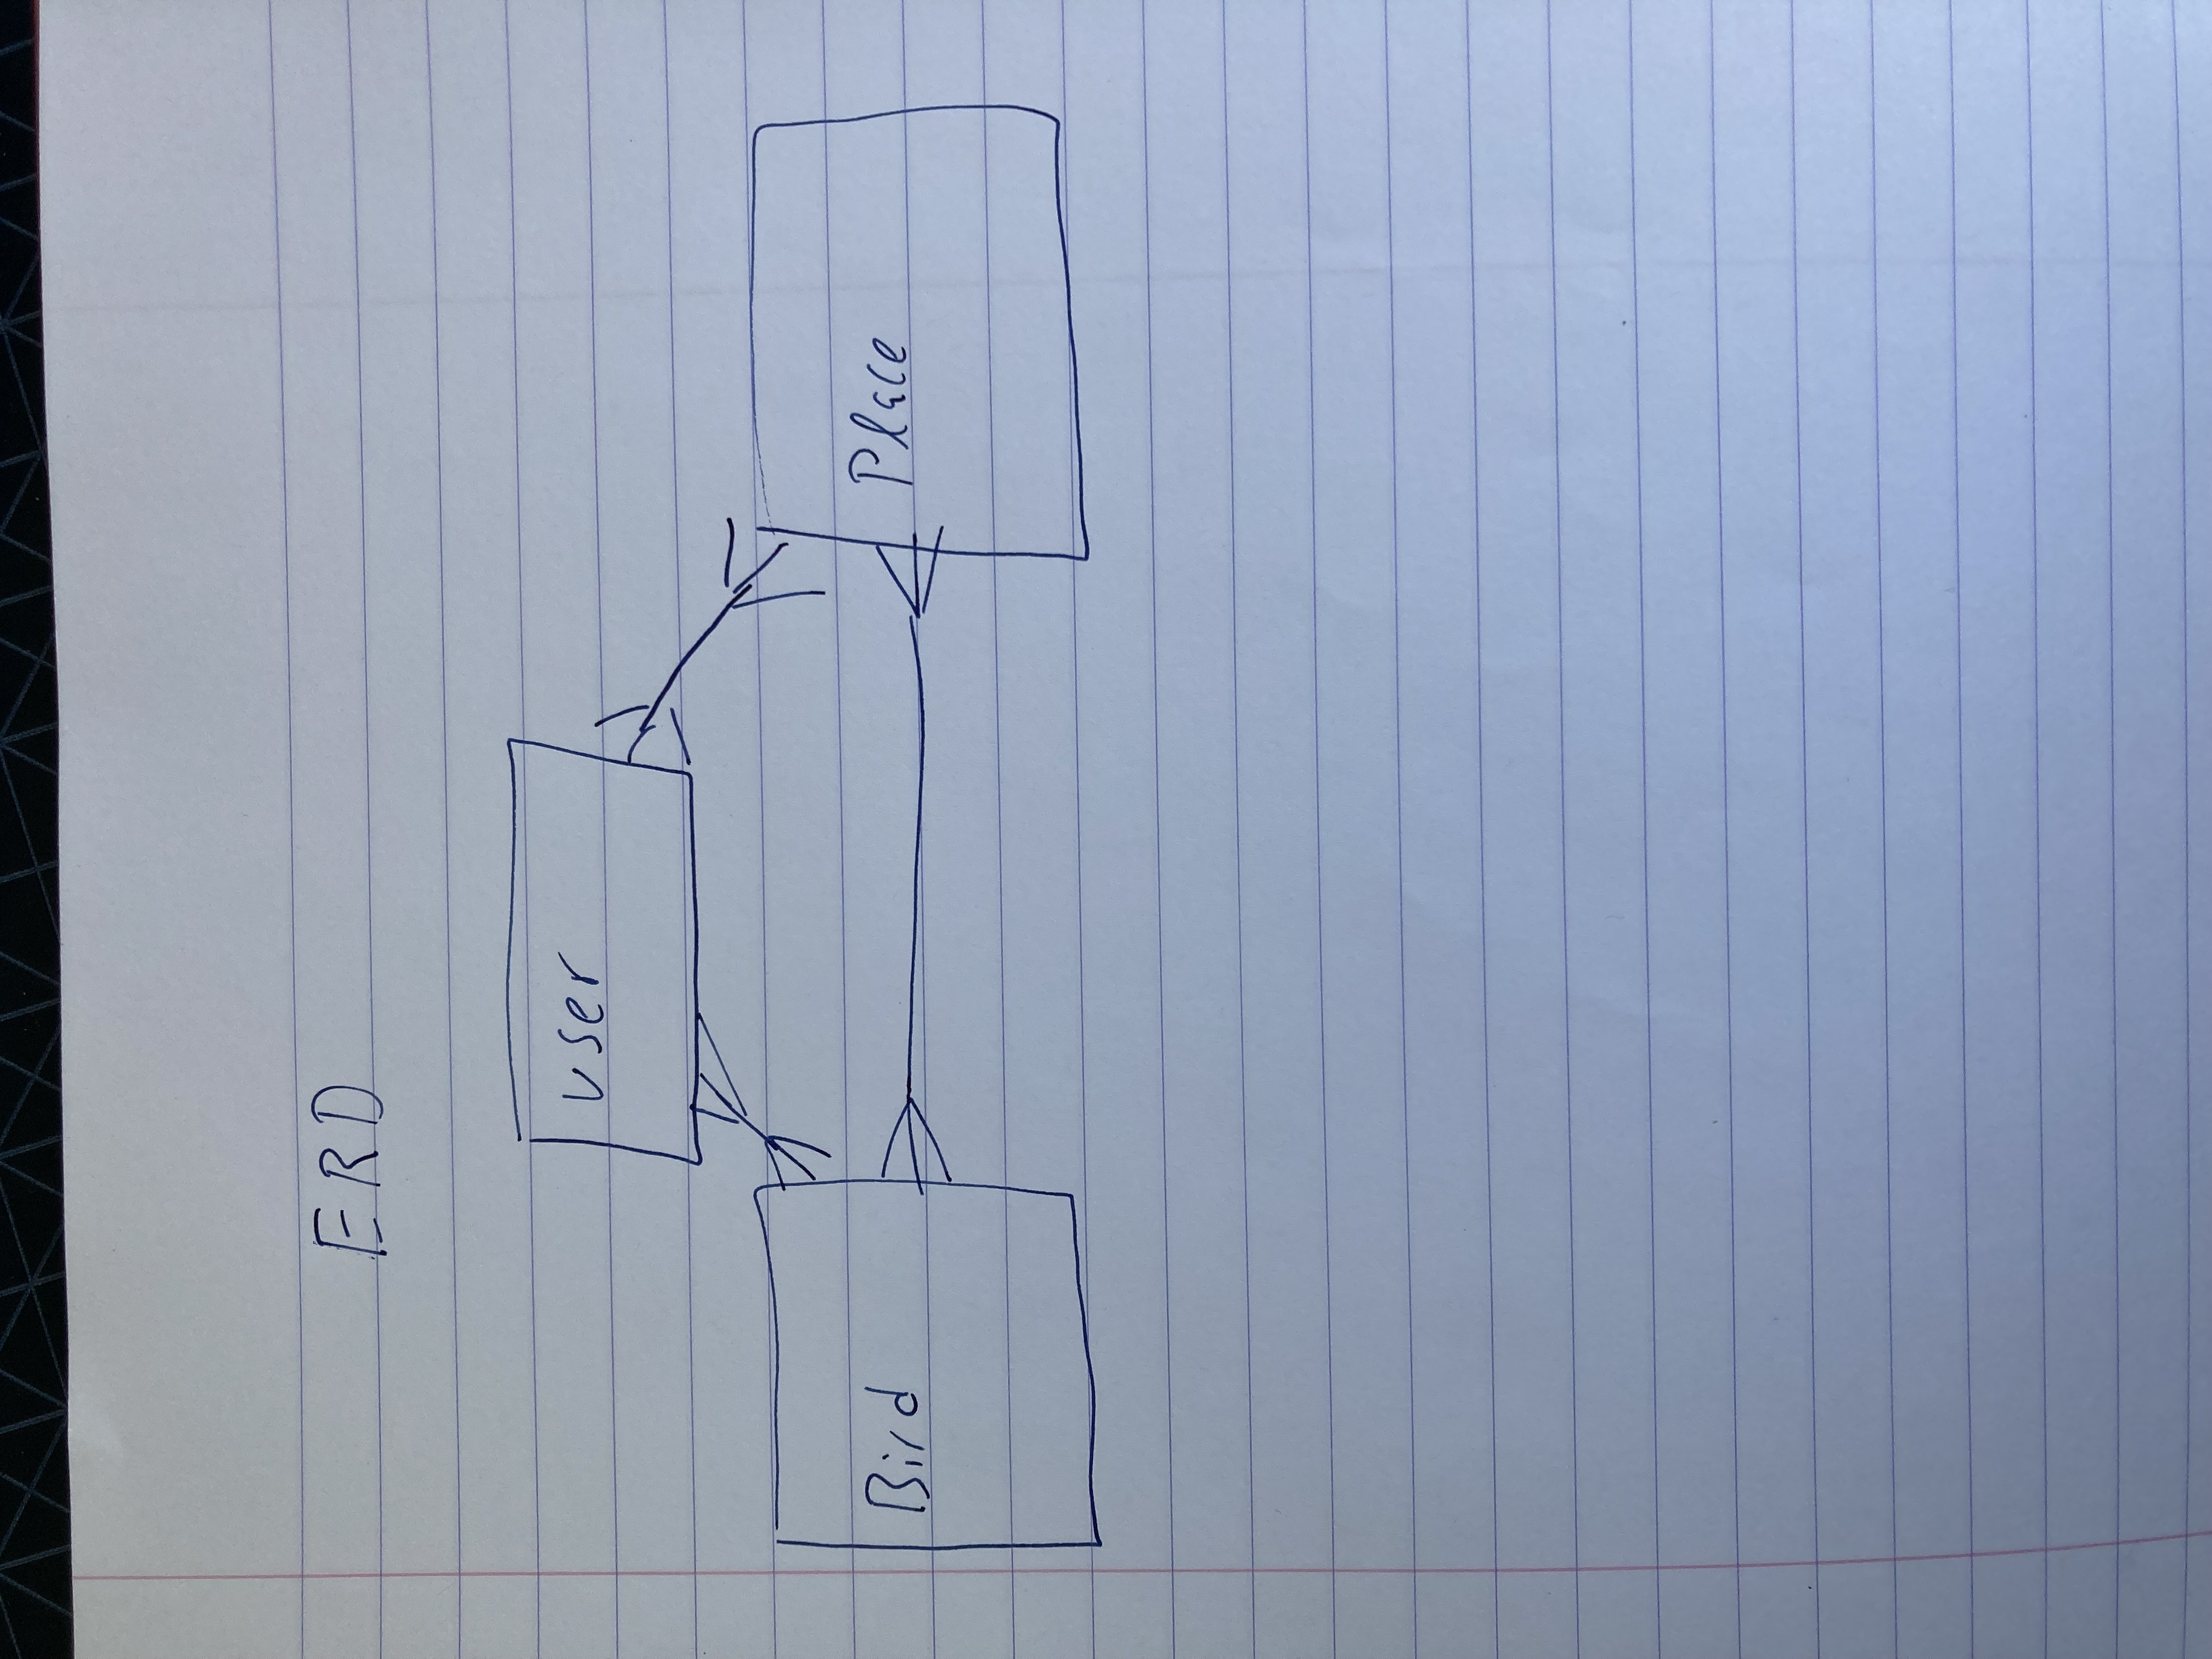 ERD
user
Bird
Place